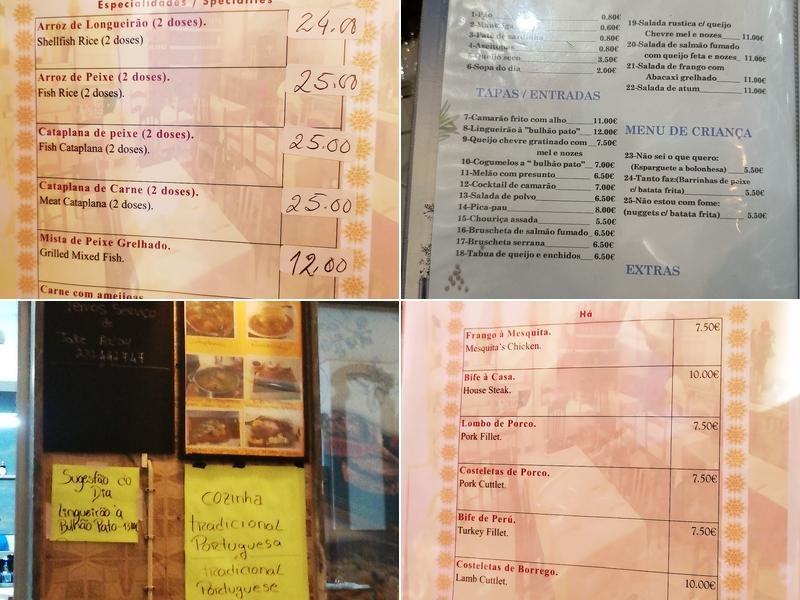 Especialidades / Specialties
Arroz de Longueirão (2 doses).
Shellfish Rice (2 doses)
24.00
Arroz de Peixe (2 doses).
Fish Rice (2 doses).
25.00
Cataplana de peixe (2 doses).
Fish Cataplana (2 doses).
25.00
Cataplana de Carne (2 doses).
Meat Cataplana (2 doses).
25.00
Mista de Peixe Grelhado.
Grilled Mixed Fish.
12,00
Carne com ameijoas
1-Pão 0.80€
2-Manteiga 0.60€
3-Paté de sardinha 0.80€
4-Azeitonas 0.80€
5-Queijo seco 3.50€
6-Sopa do dia 2.00€
TAPAS / ENTRADAS
7-Camarão frito com alho 11.00€
8-Lingueirão à "bulhão pato" 12.00€
9-Queijo chevre gratinado com 7.50€
mel e nozes
10-Cogumelos a " bulhão pato" 7.00€
11-Melão com presunto 6.50€
12-Cocktail de camarão 7.00€
13-Salada de polvo 6.50€
14-Pica-pau 8.00€
15-Chouriça assada 5.50€
16-Bruscheta de salmão fumado 6.50€
17-Bruscheta serrana 6.50€
18-Tabua de queijo e enchidos 6.50€
19-Salada rustica c/ queijo
Chevre mel e nozes 11.00€
20-Salada de salmão fumado
com queijo feta e nozes 11.00€
21-Salada de frango com
Abacaxi grelhado 11.00€
22-Salada de atum 11.00€
MENU DE CRIANÇA
23-Não sei o que quero:
(Esparguete a bolonhesa) 5.50€
24-Tanto faz:(Barrinhas de peixe
c/ batata frita) 5.50€
25-Não estou com fome:
(nuggets c/ batata frita) 5.50€
EXTRAS
Temos Serviço
de
Take Away
Sugestão do
Dia
Lingueirão à
Bulhão Pato
COZINHA
tradicional
Portuguesa
tradicional
Portuguese
Há
Frango à Mesquita.
Mesquita's Chicken.
7.50€
Bife à Casa.
House Steak.
10.00€
Lombo de Porco.
Pork Fillet.
7.50€
Costeletas de Porco.
Pork Cuttlet.
7.50€
Bife de Perú.
Turkey Fillet.
7.50€
Costeletas de Borrego.
Lamb Cuttlet.
10.00€